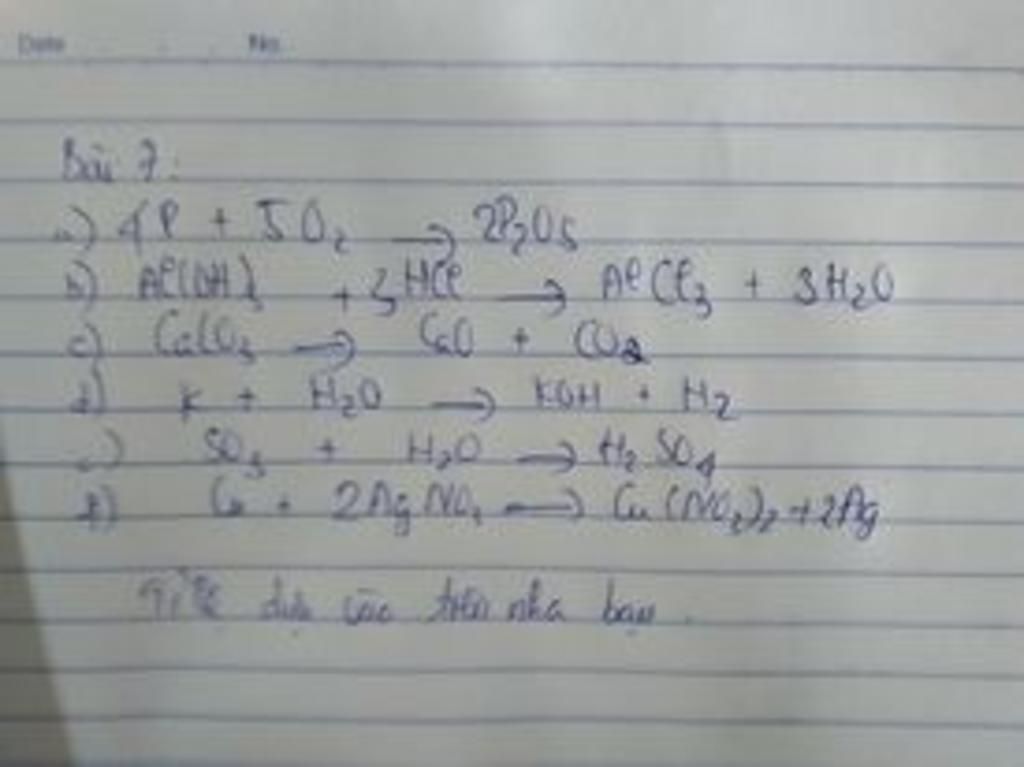 Date No.
Bài 7:
a) 4P + 5O₂ → 2P₂O₅
b) Al(OH)₃ + 3HCl → AlCl₃ + 3H₂O
c) CaCO₃ → CaO + CO₂
d) K + H₂O → KOH + H₂
e) SO₃ + H₂O → H₂SO₄
f) Cu + 2AgNO₃ → Cu(NO₃)₂ + 2Ag
Tỉ lệ dựa vào trên nha bạn.